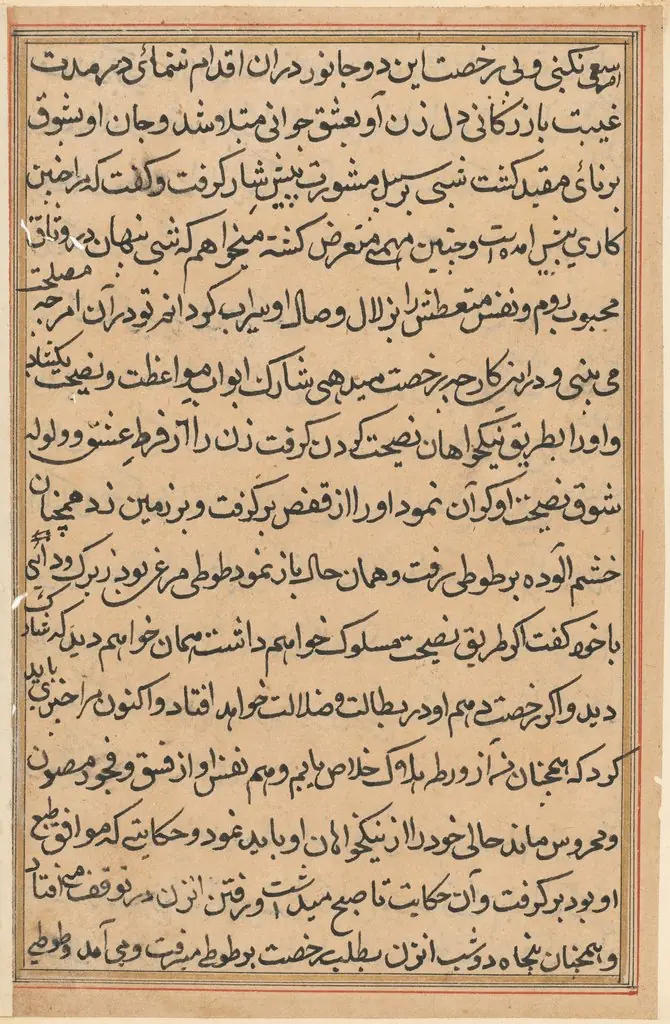 امر سعی نکنی و بی رخصت این دو جانور در ان اقدام ننمائی در مدت
غیبت بازرکانی دل زن او بعشق جوانی مبتلا شد و جان او بشوق
برنای مقید کشت شبی بر سبیل مشورت پیش شارک رفت و گفت که مرا چنین
کاری پیش امده است و چنین مهمی متعرض کشته میخواهم که شبی پنهان در وثاق
محبوب روم و نفس متعطش را بزلال وصال او سیراب کردانم تو در آن امر چه مصلحت
می بینی و در این کار چه رخصت میدهی شارک ابواب مواعظت و نصیحت بکشاد
و او را بطریق نیکخواهان نصیحت کردن کرفت زن را از فرط عشق و ولوله
شوق نصیحت او کران نمود او را از قفص برکرفت و بر زمین زد همچنان
خشم آلوده بر طوطی رفت و همان حال باز نمود طوطی مرغی بود زیرک و دانا
با خود کفت اکر طریق نصیحت مسلوک خواهم داشت همان خواهم دید که شارک
دید و اکر رخصت دهم او در بطالت و ضلالت خواهد افتاد و اکنون مرا چیزی باید
کرد که همچنان من از ورطه هلاک خلاص یابم و هم نفس او از فسق و فجور مصون
و محروس ماند حالی خود را از نیکخواهان او باید نمود و حکایتی که موافق طبع
او بود برکرفت و آن حکایت تا صبح میداشت و رفتن ان زن در توقف می افتاد
و همچنان پنجاه دو شب ان زن بطلب رخصت بر طوطی میرفت و می آمد و طوطی